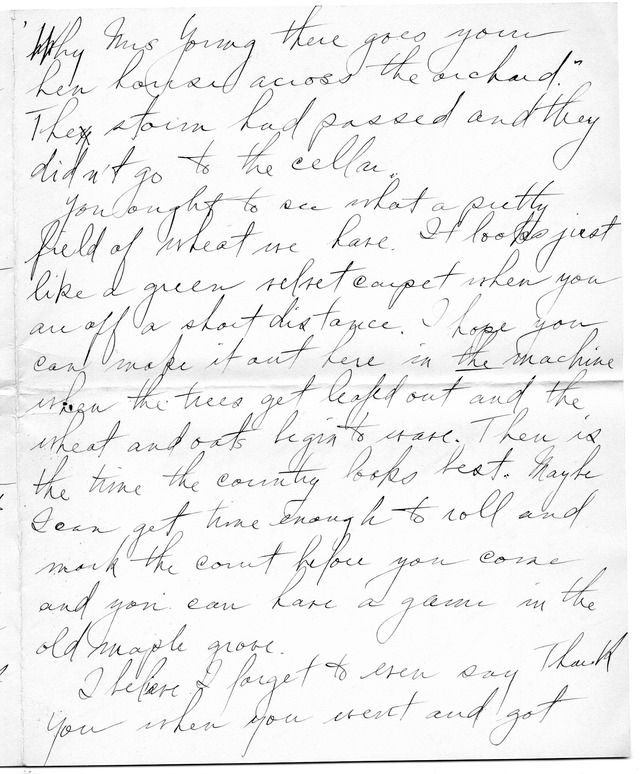 "Why Mrs Young there goes your
hen house across the orchard."
The storm had passed and they
didn't go to the cellar.
You ought to see what a pretty
field of wheat we have. It looks just
like a green velvet carpet when you
are off a short distance. I hope you
can make it out here in the machine
when the trees get leafed out and the
wheat and oats begin to wave. Then is
the time the country looks best. Maybe
I can get time enough to roll and
mark the court before you come
and you can have a game in the
old maple grove.
I believe I forget to even say Thank
you when you went and got